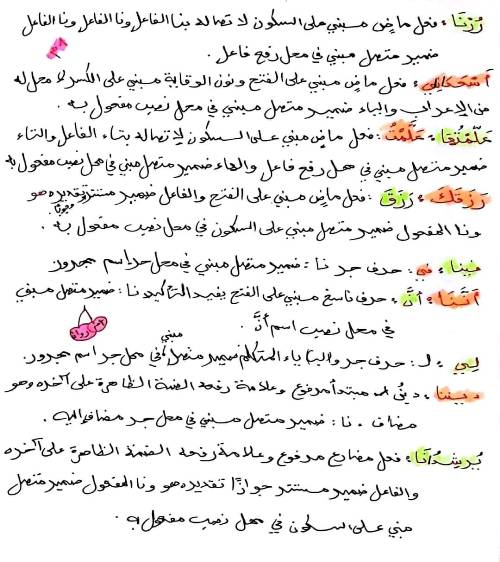 زُرْنَا : فعل ماضٍ مبني على السكون لاتصاله بنا الفاعل ونا الفاعل
ضمير متصل مبني في محل رفع فاعل .
فعل ماضٍ مبني على الفتح ونون الوقاية مبني على الكسر لا محل له
من الإعراب والياء ضمير متصل مبني في محل نصب مفعول به .
عَلَّمْتُهَا : عَلَّمْتُ : فعل ماضٍ مبني على السكون لاتصاله بتاء الفاعل والتاء
ضمير متصل مبني في محل رفع فاعل والهاء ضمير متصل مبني في محل نصب مفعول به
رَزَقَكَ : رَزَقَ : فعل ماضٍ مبني على الفتح والفاعل ضمير مستتر تقديره هو
ونا المفعول ضمير متصل مبني على السكون في محل نصب مفعول به .
فينا : في : حرف جر نا : ضمير متصل مبني في محل جر اسم مجرور
أَنَّنَا : أنَّ : حرف ناسخ مبني على الفتح يفيد التأكيد نا : ضمير متصل مبني
في محل نصب اسم أنَّ .
لِي : لـ : حرف جر والياء ياء المتكلم ضمير متصل مبني في محل جر اسم مجرور.
ديننا : دينُ : مبتدأ مرفوع وعلامة رفعه الضمة الظاهرة على آخره وهو
مضاف . نا : ضمير متصل مبني في محل جر مضاف إليه .
يُرشِدُنَا : فعل مضارع مرفوع وعلامة رفعه الضمة الظاهرة على آخره
والفاعل ضمير مستتر جوازًا تقديره هو ونا المفعول ضمير متصل
مبني على السكون في محل نصب مفعول به .